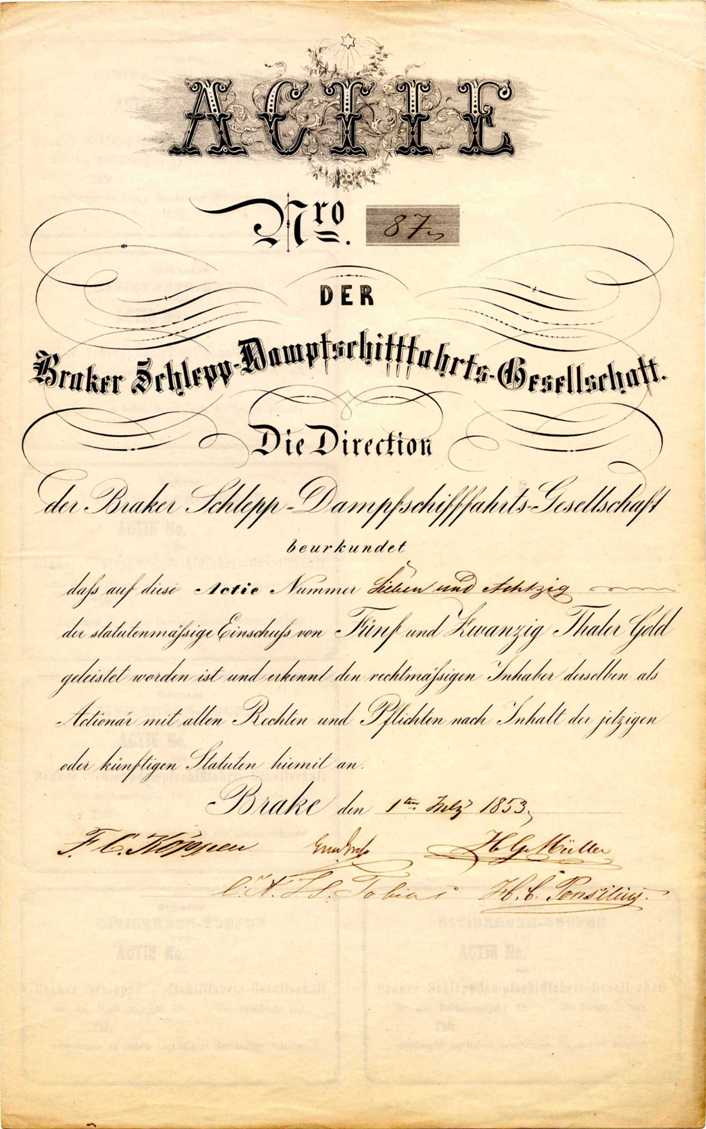 ACTIE
Nro. 87
DER
Braker Schlepp-Dampfschifffahrts-Gesellschaft.
Die Direction
der Braker Schlepp-Dampfschifffahrts-Gesellschaft
beurkundet
daſs auf diese Actie Nummer Sieben und Achtzig
der statutenmäſsige Einschuſs von Fünf und Zwanzig Thaler Gold
geleistet worden ist und erkennt den rechtmäſsigen Inhaber derselben als
Actionär mit allen Rechten und Pflichten nach Inhalt der jetzigen
oder künftigen Statuten hiemit an.
Brake den 1ten July 1853
F. C. Köppen H G Müller
C. A. H. Tobias H. C.